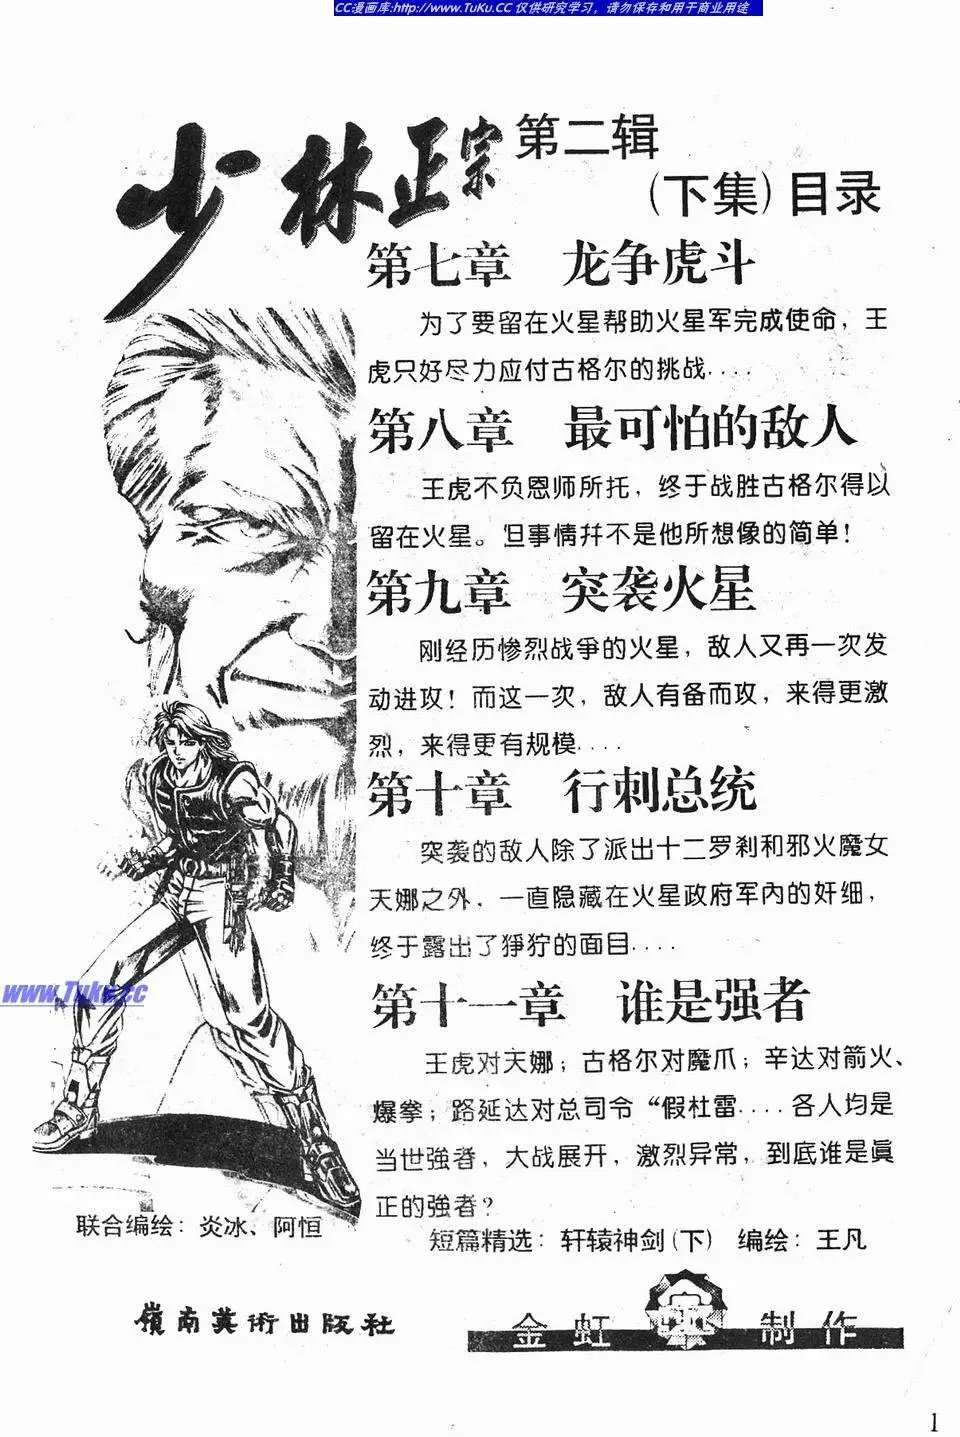 CC漫画库:http://www.TuKu.CC 仅供研究学习，请勿保存和用于商业用途
少林正宗 第二辑
(下集)目录
第七章 龙争虎斗
为了要留在火星帮助火星军完成使命，王
虎只好尽力应付古格尔的挑战....
第八章 最可怕的敌人
王虎不负恩师所托，终于战胜古格尔得以
留在火星。但事情幷不是他所想像的简单！
第九章 突袭火星
刚经历惨烈战争的火星，敌人又再一次发
动进攻！而这一次，敌人有备而攻，来得更激
烈，来得更有规模....
第十章 行刺总统
突袭的敌人除了派出十二罗刹和邪火魔女
天娜之外，一直隐藏在火星政府军內的奸细，
终于露出了狰狞的面目....
www.Tuku.cc
第十一章 谁是强者
王虎对天娜；古格尔对魔爪；辛达对箭火、
爆拳；路延达对总司令“假杜雷....各人均是
当世強者，大战展开，激烈异常，到底谁是眞
正的強者？
联合编绘：炎冰、阿恒
短篇精选：轩辕神剑(下) 编绘：王凡
嶺南美術出版社
金虹制作
1